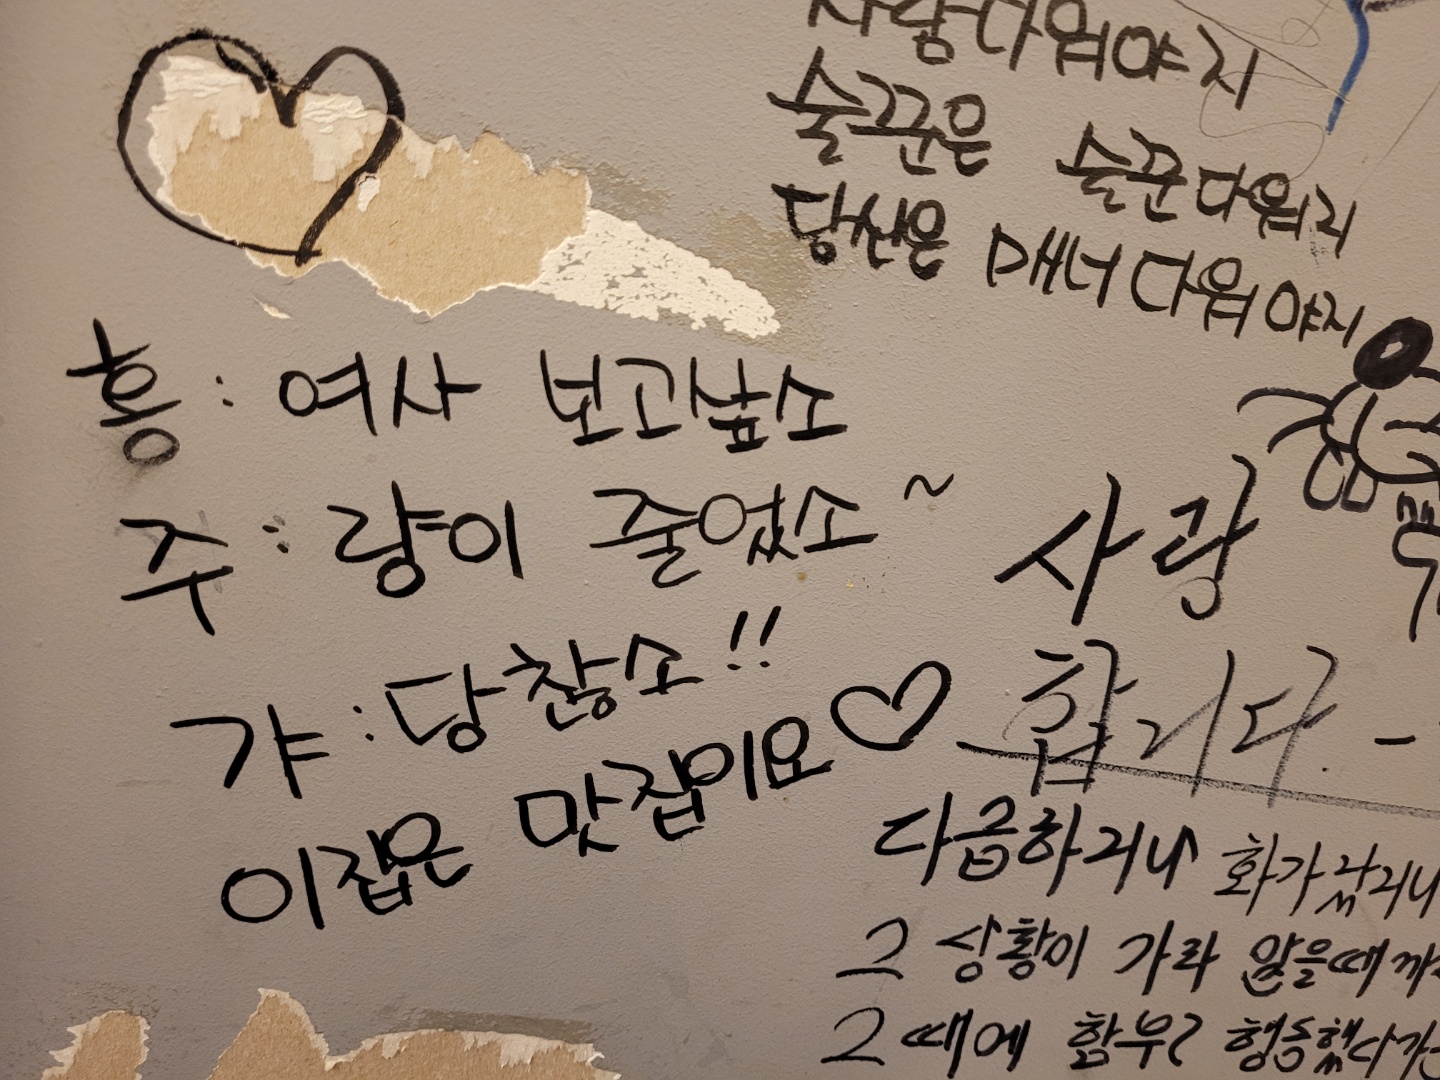 사랑다워야지
술꾼은 술꾼다워라
당신은 매너다워야지
흥 : 여사 보고싶소
주 : 량이 줄었소~
갸 : 당찮소!!
이집은 맛집이요♡
사랑
합니다.
다급하거나 화가났거나
그 상황이 가라 앉을때까
그때에 함부로 행동했다간